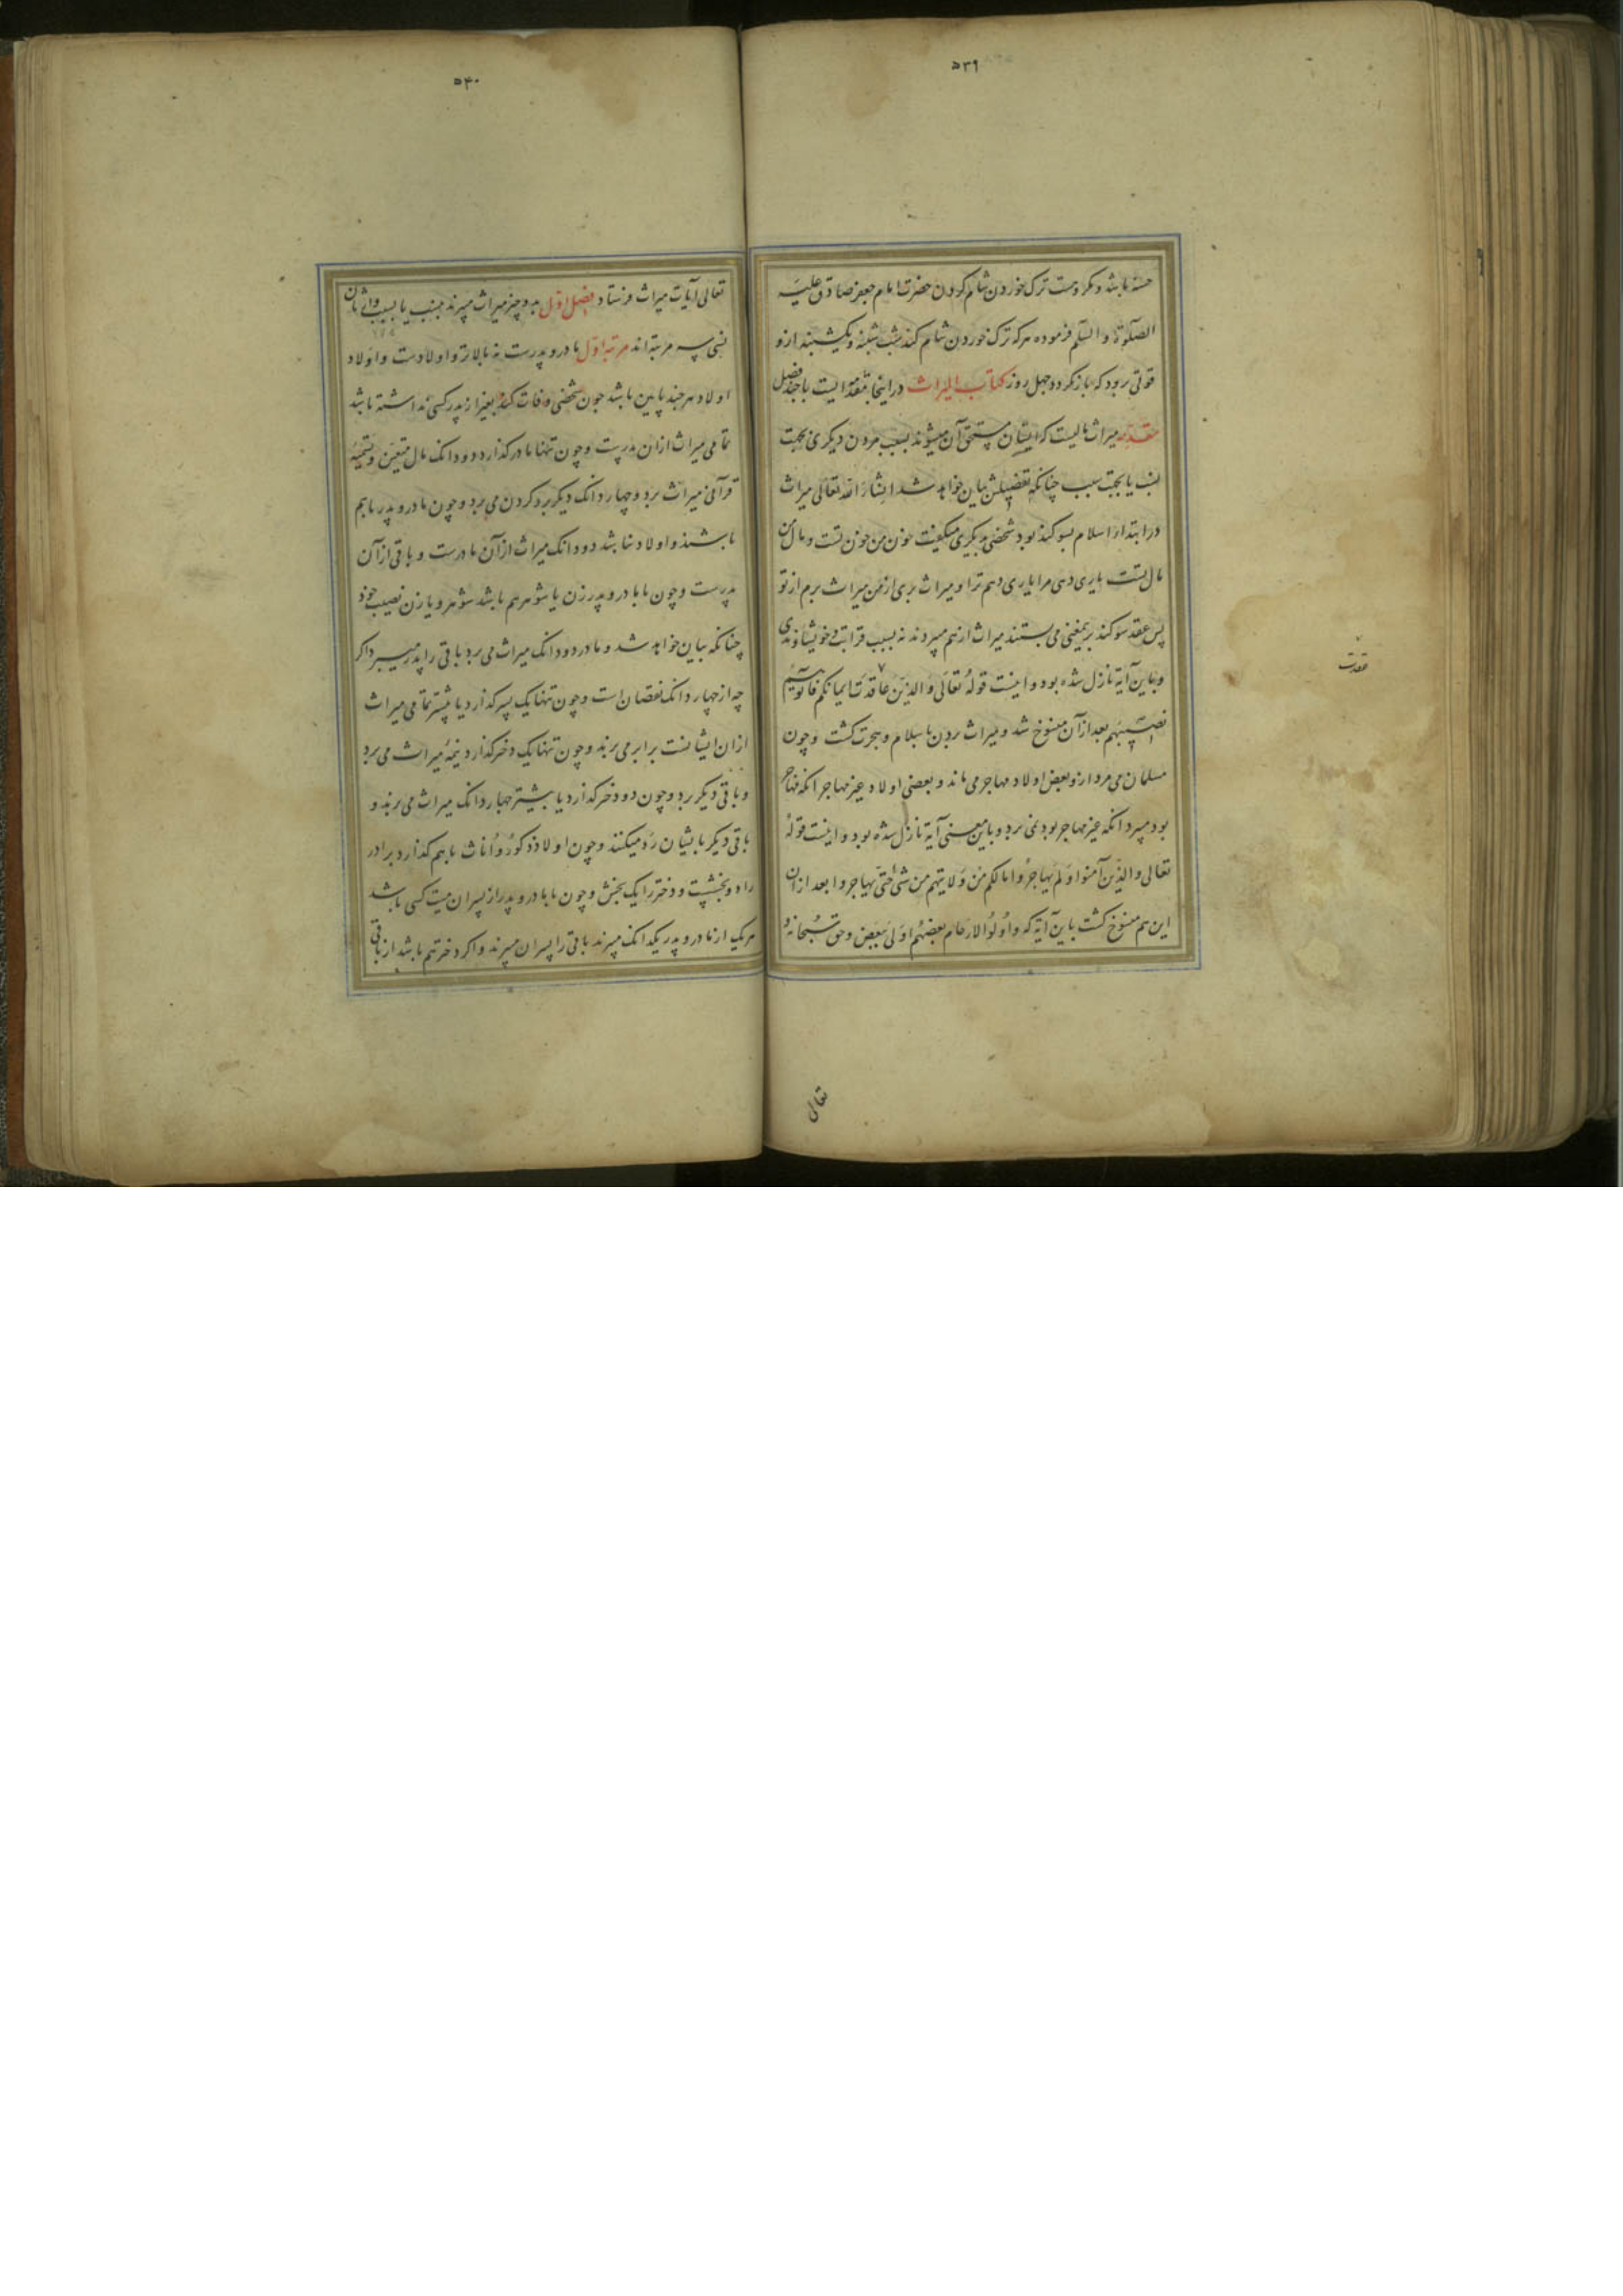 ۵۳۹
خسته باشد و مکروهست ترک خوردن شام کردن حضرت امام جعفر صادق علیه
الصلوة و السلم فرموده هر که ترک خوردن شام کند شب شنبه و یکشنبه ازو
قوتی رود که باز نگردد چهل روز کتاب المیراث در اینجا مقدمه ایست با چند فصل
مقدمه میراث مالیست که ایشان مستحق آن میشوند بسبب مردن دیگری بجهت
نسب یا بجهت سبب چنانکه تفصیلش بیان خواهد شد انشاء الله تعالی میراث
در ابتداء اسلام بسوکند بود شخصی بدیکری میکفت خون من خون تست و مال من
مال تست یاری دهی مرا یاری دهم ترا و میراث بری از من میراث برم از تو
پس عقد سوکند برین معنی می بستند میراث از هم میبردند نه بسبب قرابت و خویشاوندی
و باین آیة نازل شده بود و اینست قوله تعالی و الذین عاقدت ایمانکم فآتوهم
نصیبهم بعد از آن منسوخ شد و میراث بردن باسلام و هجرت کشت و چون
مسلمان می مرد ازو بعض اولاد مهاجر می ماند و بعضی اولاد غیر مهاجر انکه مهاجر
بود میبرد انکه غیر مهاجر بود نمی برد و باین معنی آیة نازل شده بود و اینست قوله
تعالی و الذین آمنوا و لم یهاجروا مالکم من ولایتهم من شیء حتی یهاجروا بعد از ان
این هم منسوخ کشت باین آیة که و اولوا الارحام بعضهم اولی ببعض و حق سبحانه و
عقدت
تعالی
۵۴۰
تعالی آیات میراث فرستاد فصل اول بدو چیز میراث میبرند بنسب یا بسبب وارثان
نسبی سه مرتبه اند مرتبه اول مادر و پدرست نه بالاتر و اولادست و اولاد
اولاد هر چند پایین باشد چون شخصی وفات کند بغیر از پدر کسی نداشته باشد
تمامی میراث از ان پدرست و چون تنها مادر کذارد دو دانک مال متعین و تسمیهٔ
قرآنی میراث برد و چهار دانک دیکر برد کردن می برد و چون مادر و پدر باهم
باشند و اولاد نباشد دو دانک میراث از آن مادرست و باقی از آن
پدرست و چون با مادر و پدر زن یا شوهر هم باشد شوهر و یا زن نصیب خود
چنانکه بیان خواهد شد و مادر دو دانک میراث می برد باقی را پدر میبرد اکر
چه از چهار دانک نقصان است و چون تنها یک پسر کذارد یا بیشتر تمامی میراث
از ان ایشانست برابر می برند و چون تنها یک دختر کذارد نیمهٔ میراث می برد
و باقی دیکر برد و چون دو دختر کذارد یا بیشتر چهار دانک میراث می برند و
باقی دیکر بایشان رد میکنند و چون اولاد ذکور و اناث باهم کذارد برادر
را دو بخشست و دختر را یک بخش و چون با مادر و پدر از پسران میت کسی باشد
هر یک از مادر و پدر یکدانک میبرند باقی را پسران میبرند و اکر دختر هم باشد از باقی